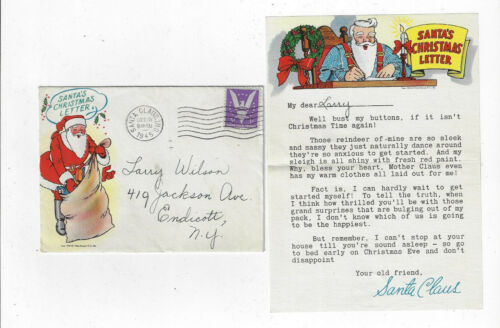 SANTA'S
CHRISTMAS
LETTER
SANTA CLAUS, IND.
1945
Larry Wilson
419 Jackson Ave.
Endicott,
N.Y.
SANTA'S
CHRISTMAS
LETTER
My dear Larry
Well bust my buttons, if it isn't
Christmas Time again!
Those reindeer of-mine are so sleek
and sassy they just naturally dance around
they're so anxious to get started. And my
sleigh is all shiny with fresh red paint.
Why, bless your heart, Mother Claus even
has my warm clothes all laid out for me!
Fact is, I can hardly wait to get
started myself! To tell the truth, when
I think how thrilled you'll be with those
grand surprises that are bulging out of my
pack, I don't know which of us is going
to be the happiest.
But remember, I can't stop at your
house till you're sound asleep - so go
to bed early on Christmas Eve and don't
disappoint
Your old friend,
Santa Claus